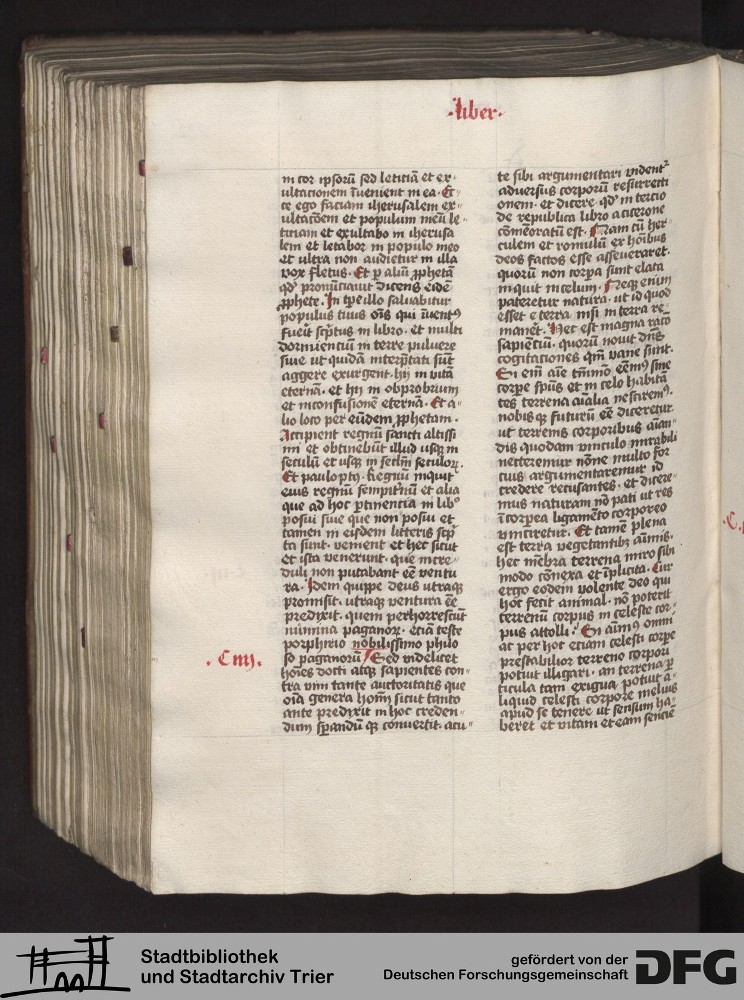 ·liber·
in cor ipsorū sed leticiā et ex-
ultacionem īuenient in ea. Ec-
ce ego faciam iherusalem ex-
ultacōem et populum meū le-
ticiam et exultabo in iherusa
lem et letabor in populo meo
et ultra non audietur in illa
vox fletus. Et p aliū ꝓphetā
qd' pronūciauit dicens eidē
ꝓphete. In tpe illo saluabitur
populus tuus oīs qui īuentꝰ
fuerit scptus in libro. et multi
dormienciū in terre puluere
siue ut quidā interptati sūt
aggere exurgent. hij in vitā
eternā. et hij in obprobrium
et inconfusionē eternā. Et a-
lio loco per eūdem ꝓphetam.
Accipient regnū sancti altissi
mi et obtinebūt illud usqꝫ in
seculū et usqꝫ in seclm seculoꝝ.
Et paulo pꝰ. Regnū inquit
eius regnū sempitnū et alia
que ad hoc ptinencia in libꝰ
posui siue que non posui et
tamen in eisdem litteris scp
ta sunt. venient et hec sicut
et ista venerunt. que incre-
duli non putabant eē ventu
ra. Idem quippe deus utraqꝫ
promisit. utraqꝫ ventura eē
predixit. quem perhorrescūt
numina paganoꝝ. eciā teste
porphirio nobilissimo philo
so paganorū Sed videlicet
hoīes docti atqꝫ sapientes con-
tra vim tante auctoritatis que
oīa genera homī sicut tanto
ante predixit in hoc creden-
dum spandū qꝫ convertit. acu-
.C iiij.
te sibi argumentari vident
adversus corporū resurrecti
onem. et dicere qd' in tercio
de republica libro a cicerone
cōmēoratū est. Nam cū her-
culem et romulū ex hoībus
deos factos esse asseveraret.
quorū non corpa sunt elata
inquit in celum. Neqꝫ enim
pateretur natura. ut id quod
esset e terra nisi in terra re-
manet. Hec est magna racō
sapiencium. quorū novit dn̄s
cogitationes qm̄ vane sunt.
Si em̄ aīe tm̄mō eēmꝰ sine
corpe spūs et in celo habitā
tes terrena aīalia nesciremꝰ.
nobisqꝫ futurū eē diceretur
ut terrenis corporibus aīan-
dis quodam vinculo mirabili
necteremur nōne multo for
cius argumentaremur id
credere recusantes. et dicere-
mus naturam nō pati ut res
īcorpea ligamēto corporeo
vinciretur. Et tamē plena
est terra vegetantibꝫ aīmis.
hec mēbra terrena miro sibi
modo cōnexa et īplicita. Cur
ergo eodem volente deo qui
hoc fecit animal. nō poterit
terrenū corpus in celeste cor-
pus attolli. Si aīmꝰ omni
ac per hoc eciam celesti corpe
prestabilior terreno corpori
potuit illigari. an terrena p
ticula tam exigua potuit a-
liquid celesti corpore melius
apud se tenere ut sensum ha-
beret et vitam et eam sencie
.C.
Stadtbibliothek
und Stadtarchiv Trier
gefördert von der
Deutschen Forschungsgemeinschaft
DFG